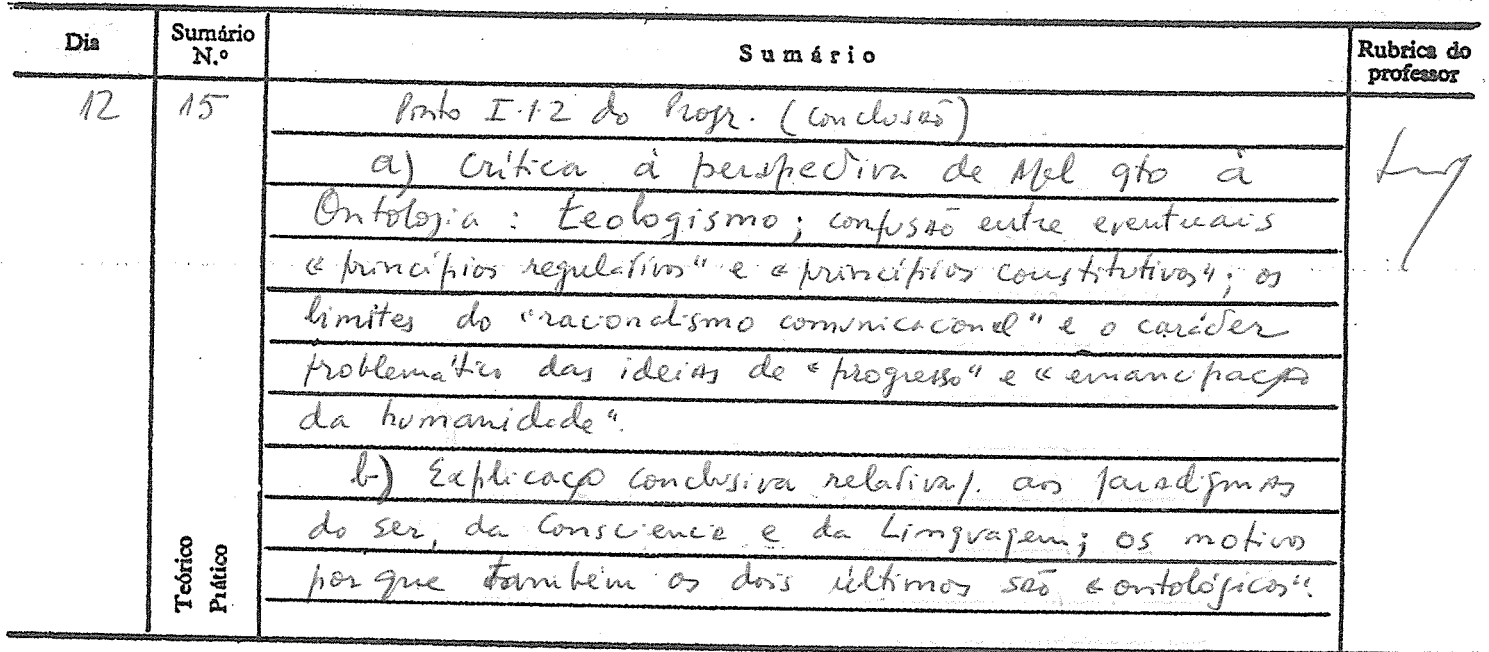 Dia Sumário N.º Sumário Rubrica do professor
12 15 Ponto I.1.2 do Progr. (conclusão)
a) Crítica à perspectiva de Apel qto à
Ontologia : teologismo; confusão entre eventuais
« princípios regulativos" e « princípios constitutivos"; os
limites do "racionalismo comunicacional" e o carácter
problemático das ideias de « progresso" e « emancipação
da humanidade".
b) Explicação conclusiva relativa/. aos paradigmas
do ser, da Consciência e da Linguagem; os motivos
por que também os dois últimos são « ontológicos".
Teórico
Prático